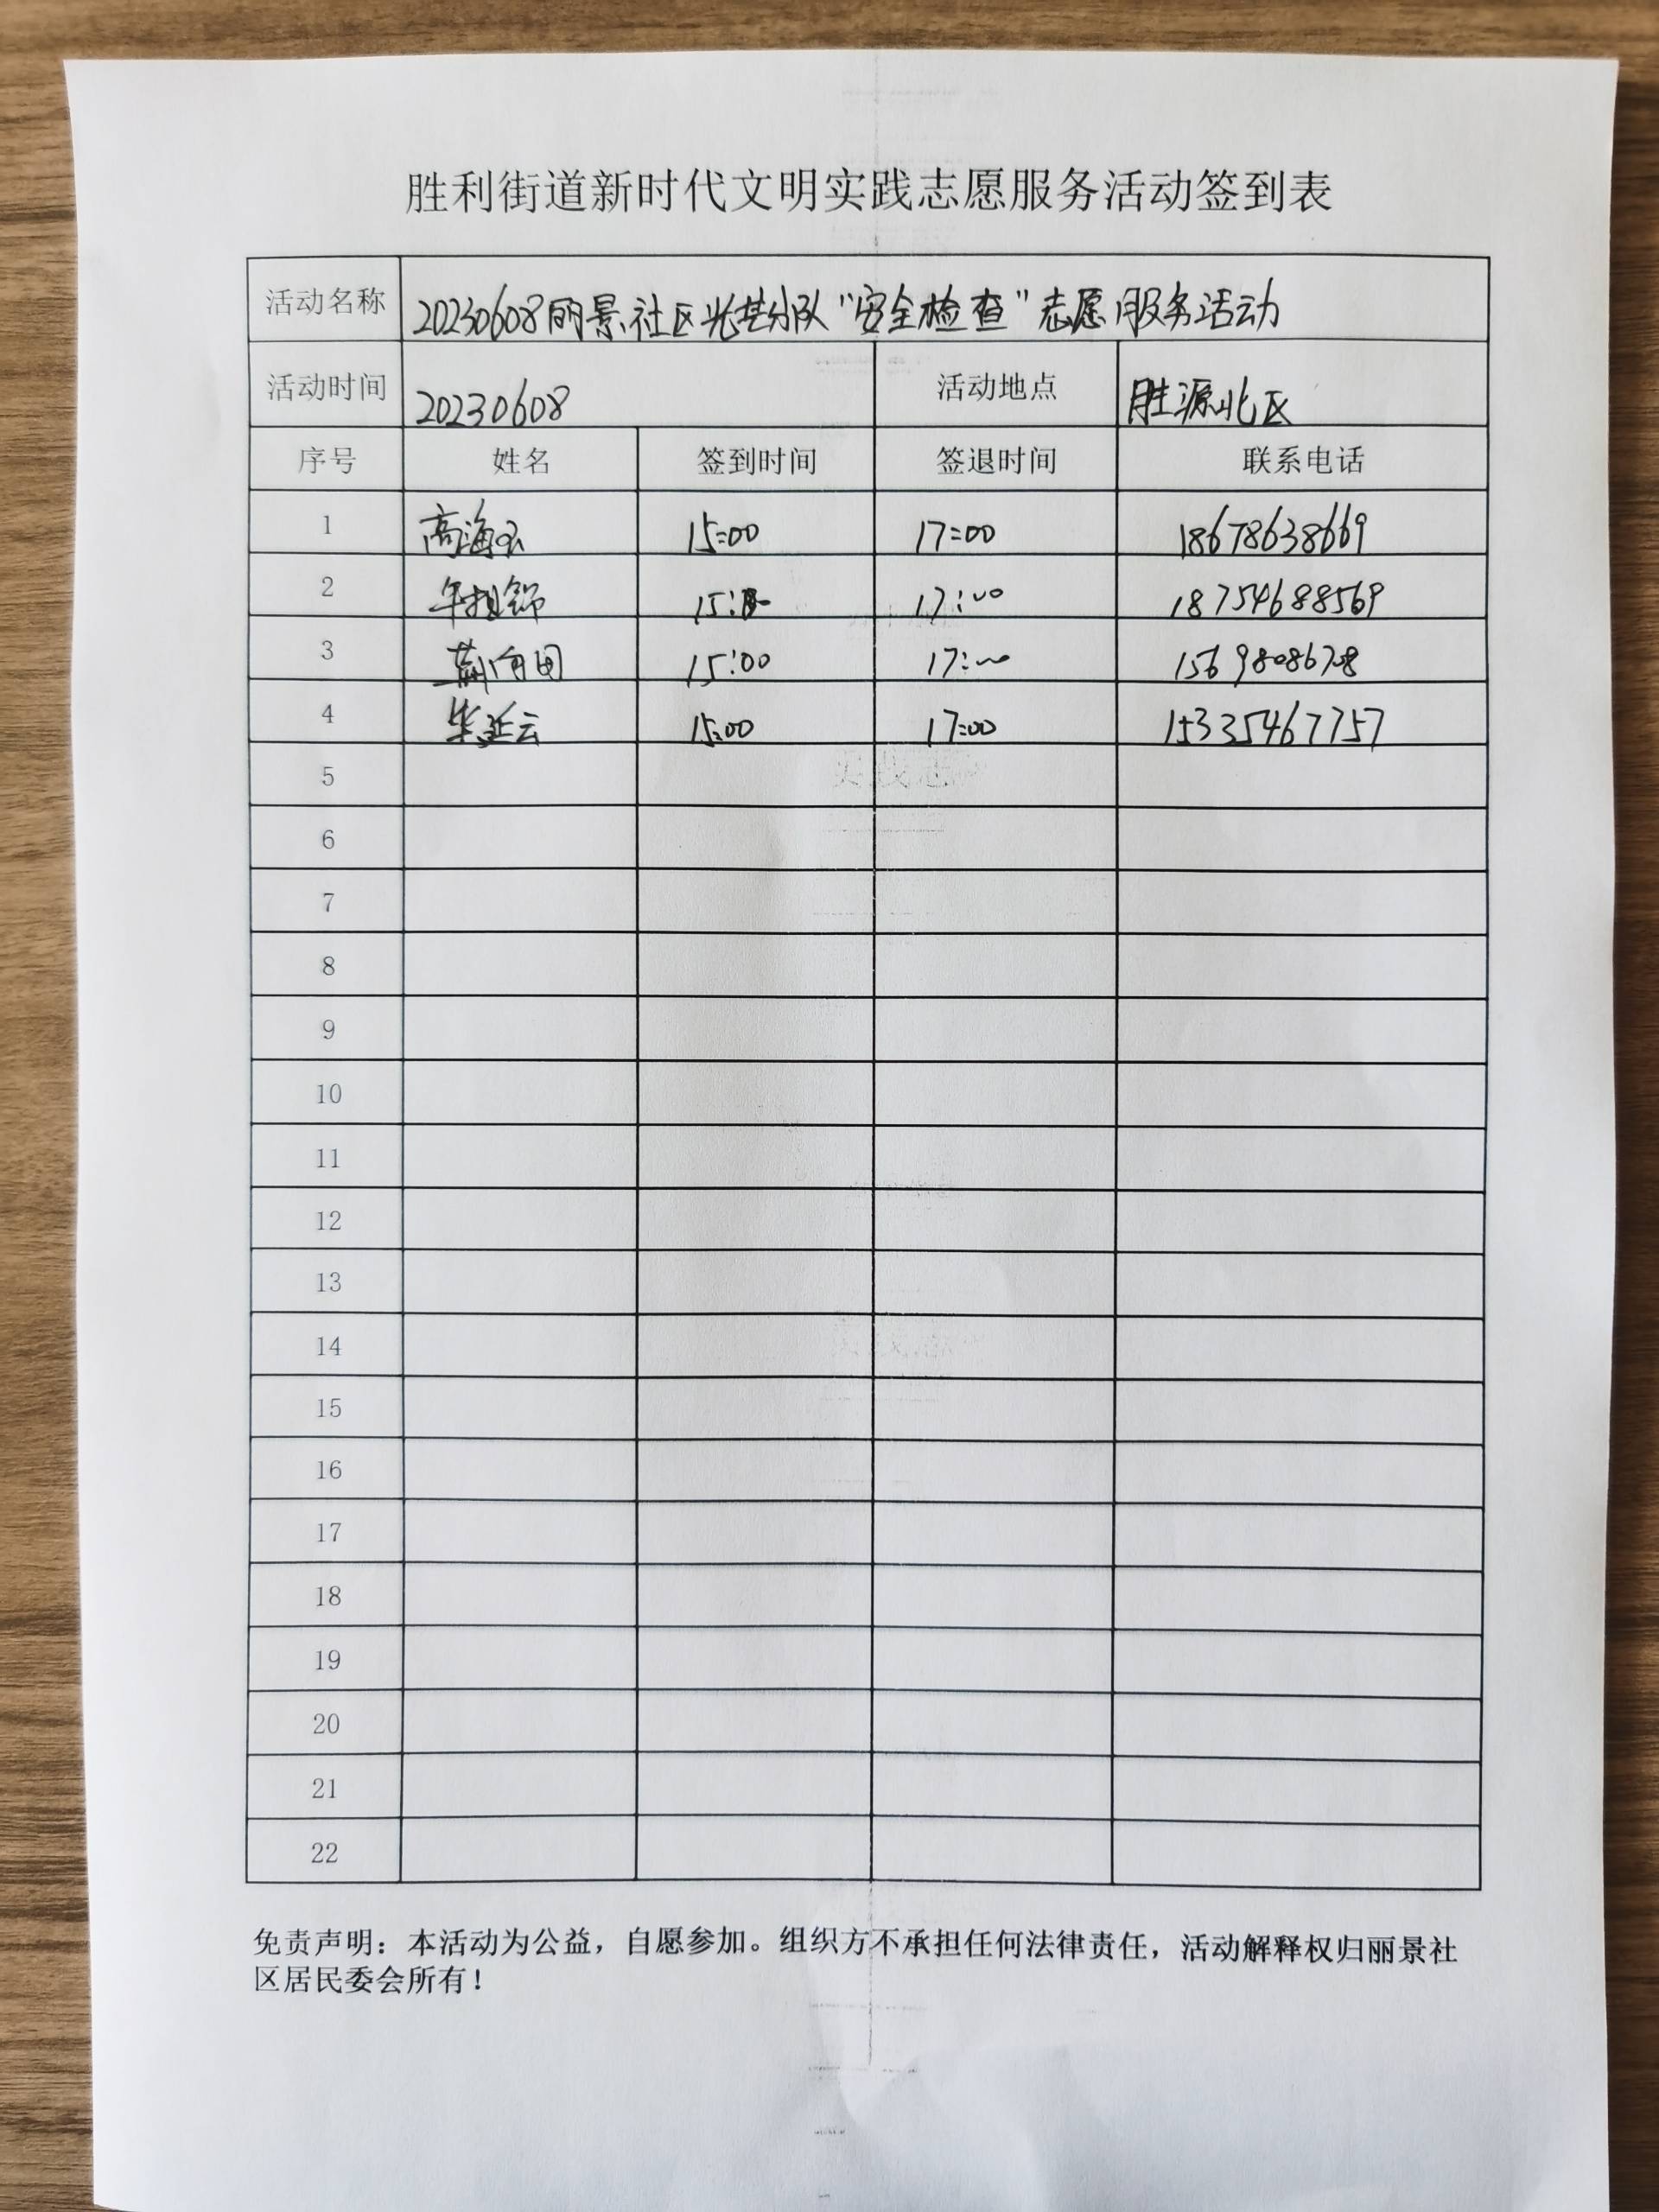 胜利街道新时代文明实践志愿服务活动签到表
活动名称 20230608丽景社区党群分队“安全检查”志愿服务活动
活动时间 20230608 活动地点 胜源北区
序号 姓名 签到时间 签退时间 联系电话
1 高海云 15:00 17:00 18678638669
2 15:00 17:00 18754688569
3 15:00 17:00
4 15:00 17:00 15335467757
5
6
7
8
9
10
11
12
13
14
15
16
17
18
19
20
21
22
免责声明：本活动为公益，自愿参加。组织方不承担任何法律责任，活动解释权归丽景社
区居民委会所有！